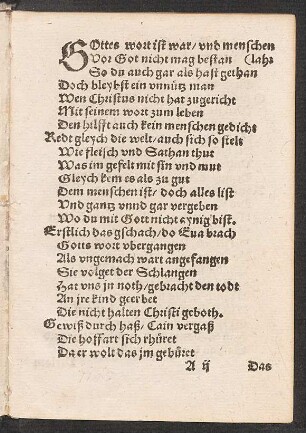 GOttes wort ist war/ vnd menschen
Vor Got nicht mag bestan (lahr
So du auch gar als hast gethan
Doch bleybst ein vnnütz man
Wen Christus nicht hat zugericht
Mit seinem wort zum leben
Den hilfft auch kein menschen gedicht
Redt gleych die welt/ auch sich so stelt
Wie fleisch vnd Sathan thut
Was im gefelt mit sin vnd mut
Gleych kem es als zu gut
Dem menschen ist/ doch alles list
Vnd gantz vnnd gar vergeben
Wo du mit Gott nicht eynig bist.
Erstlich das gschach/ do Eua brach
Gotts wort vbergangen
Als vngemach wart angefangen
Sie volget der Schlangen
Hat vns in noth/ gebracht den todt
An jre kind geerbet
Die nicht halten Christi geboth.
Gewiß durch haß/ Cain vergaß
Die hoffart sich rhüret
Da er wolt das jm gebüret
A ij Das